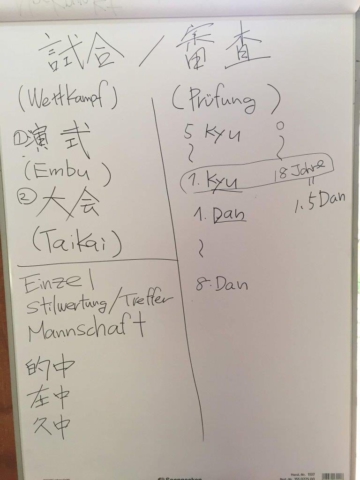 試合 / 審査
(Wettkampf)
①演式
(Embu)
②大会
(Taikai)
Einzel
Stilwertung/Treffer
Mannschaft
的中
在中
久中
(Prüfung)
5 Kyu 0
1. Kyu 18 Jahre
1. Dan 1.5 Dan
8. Dan